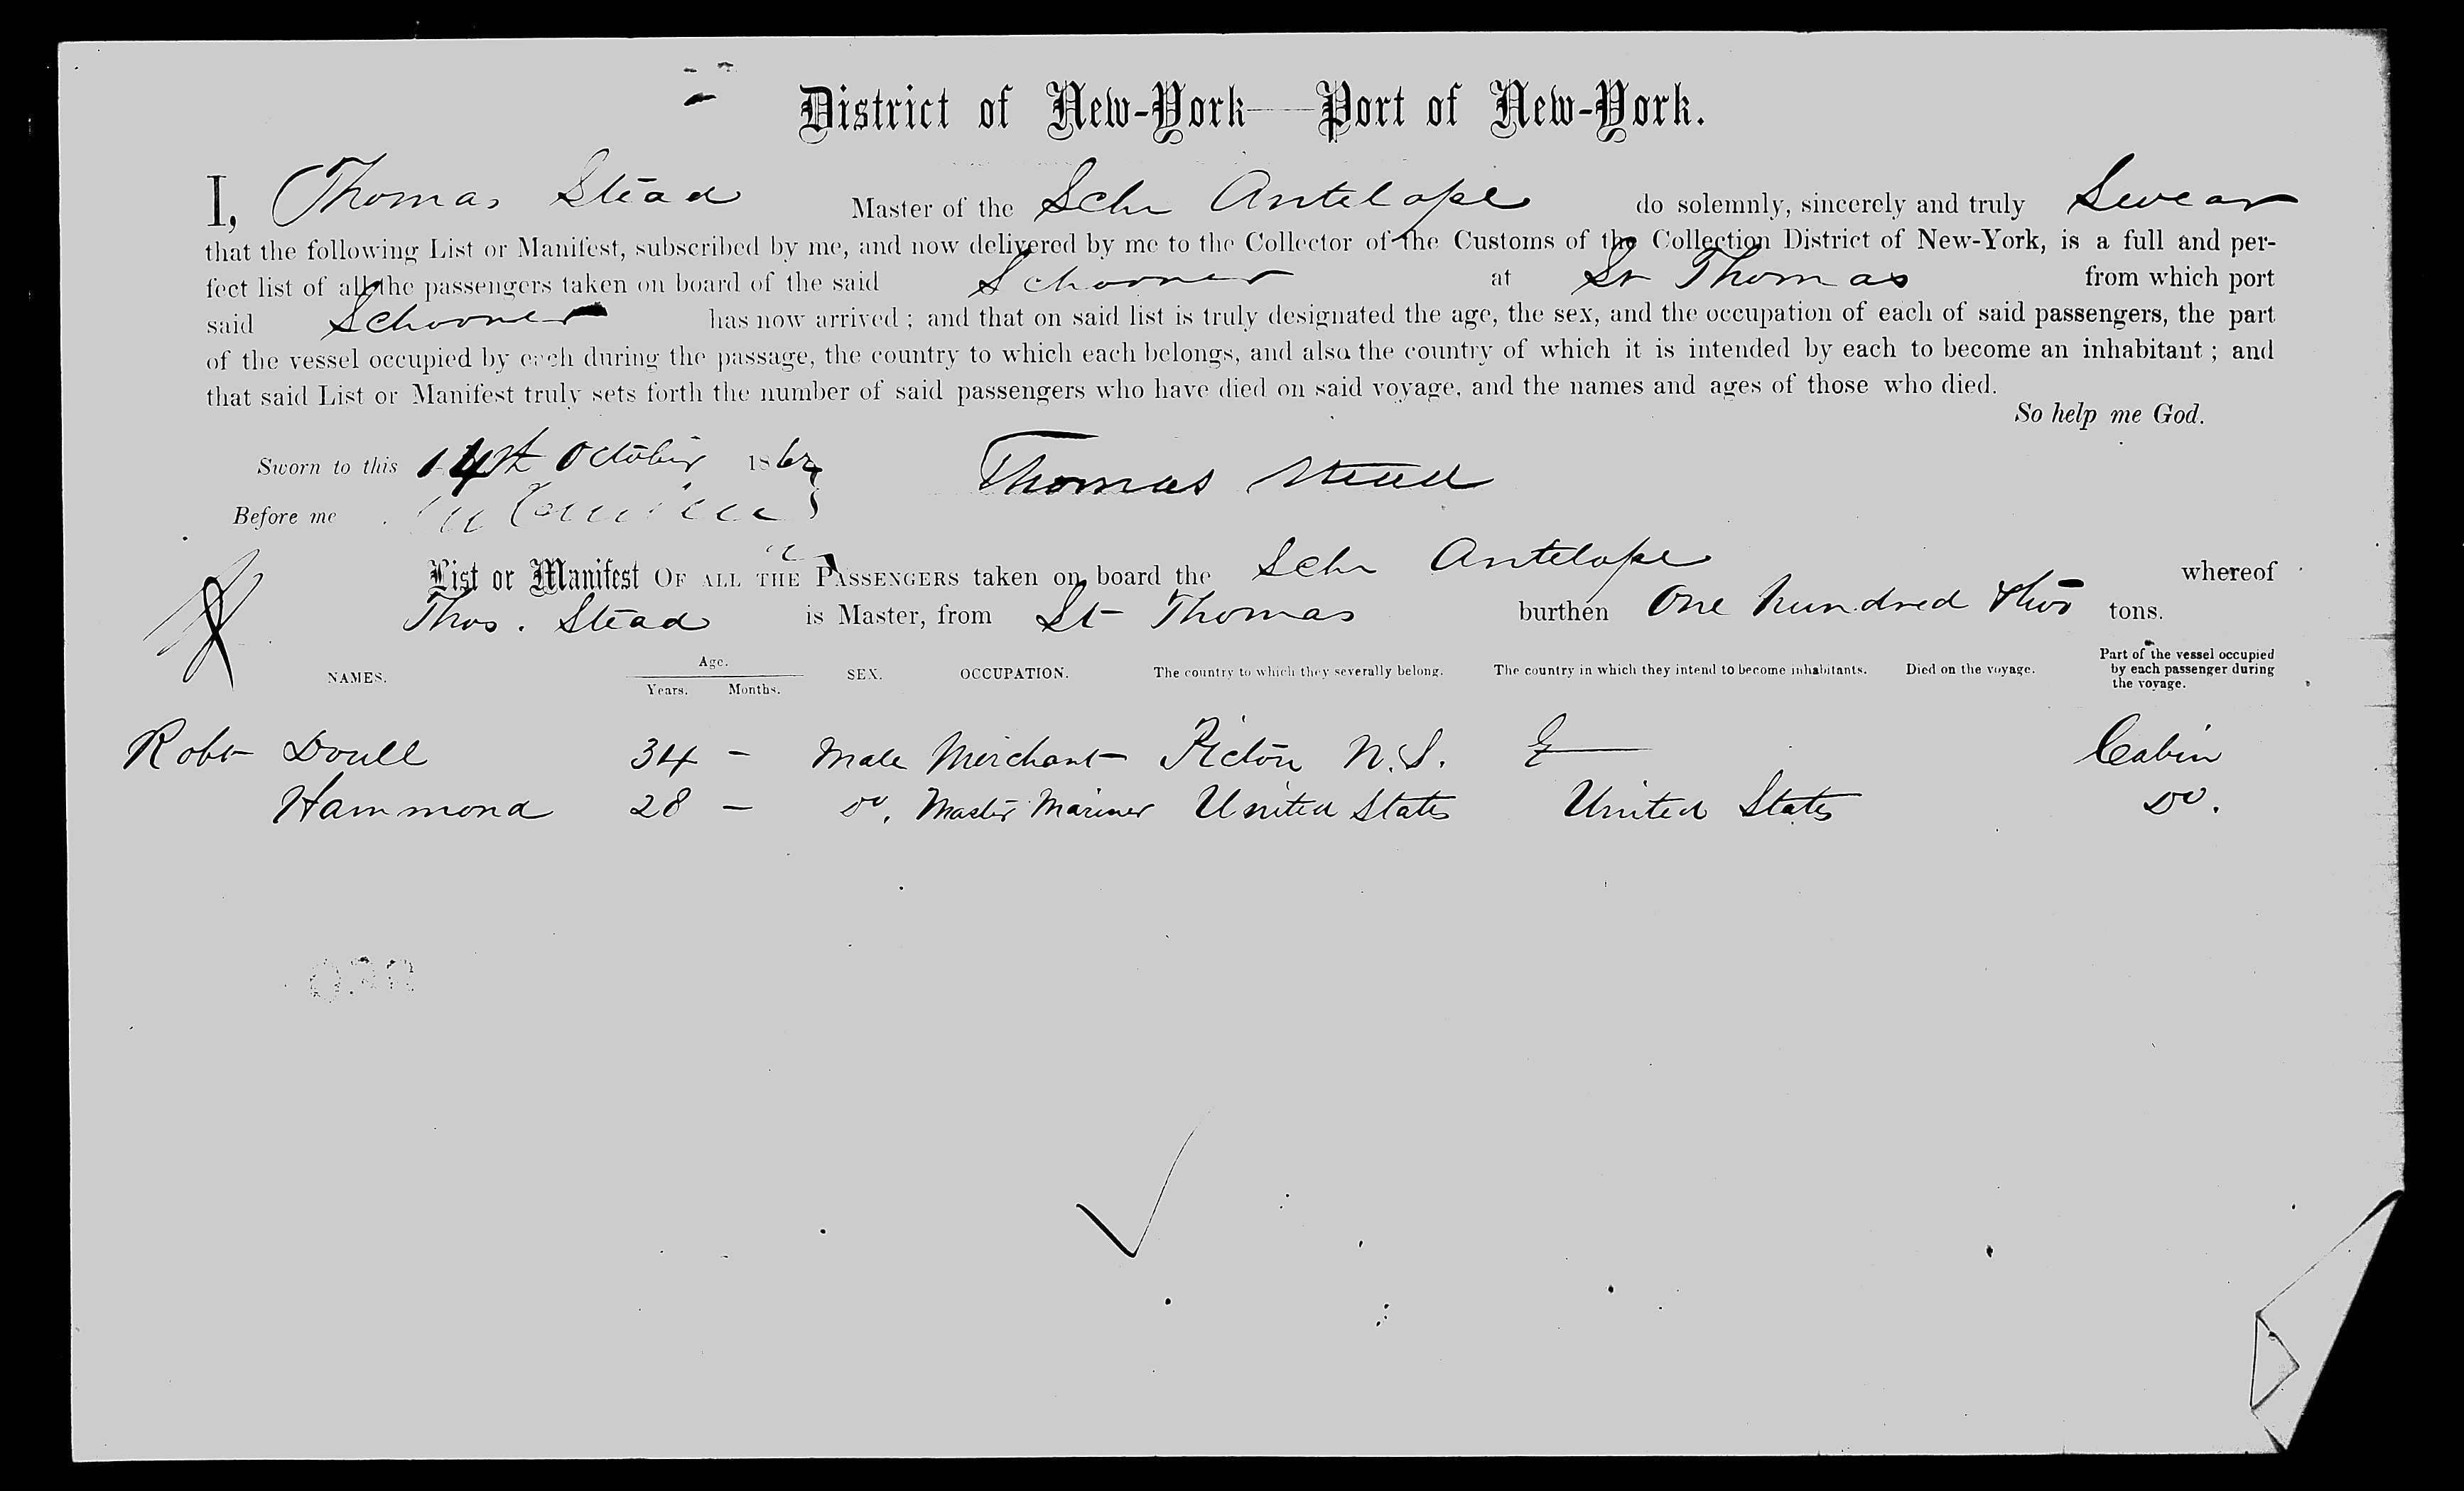 District of New-York—Port of New-York.
I, Thomas Stead Master of the Schr Antelope do solemnly, sincerely and truly Swear
that the following List or Manifest, subscribed by me, and now delivered by me to the Collector of the Customs of the Collection District of New-York, is a full and per-
fect list of all the passengers taken on board of the said Schooner at St Thomas from which port
said Schooner has now arrived ; and that on said list is truly designated the age, the sex, and the occupation of each of said passengers, the part
of the vessel occupied by each during the passage, the country to which each belongs, and also the country of which it is intended by each to become an inhabitant ; and
that said List or Manifest truly sets forth the number of said passengers who have died on said voyage, and the names and ages of those who died.
So help me God.
Sworn to this October 186 Thomas Stead
Before me
List or Manifest OF ALL THE PASSENGERS taken on board the Schr Antelope whereof
Thos. Stead is Master, from St Thomas burthen One hundred & two tons.
NAMES. Age. Years. Months. SEX. OCCUPATION. The country to which they severally belong. The country in which they intend to become inhabitants. Died on the voyage. Part of the vessel occupied by each passenger during the voyage.
Robt Doull 34 – Male Merchant Pictou N.S. Cabin
Hammond 28 – Do. Master Mariner United States United States Do.